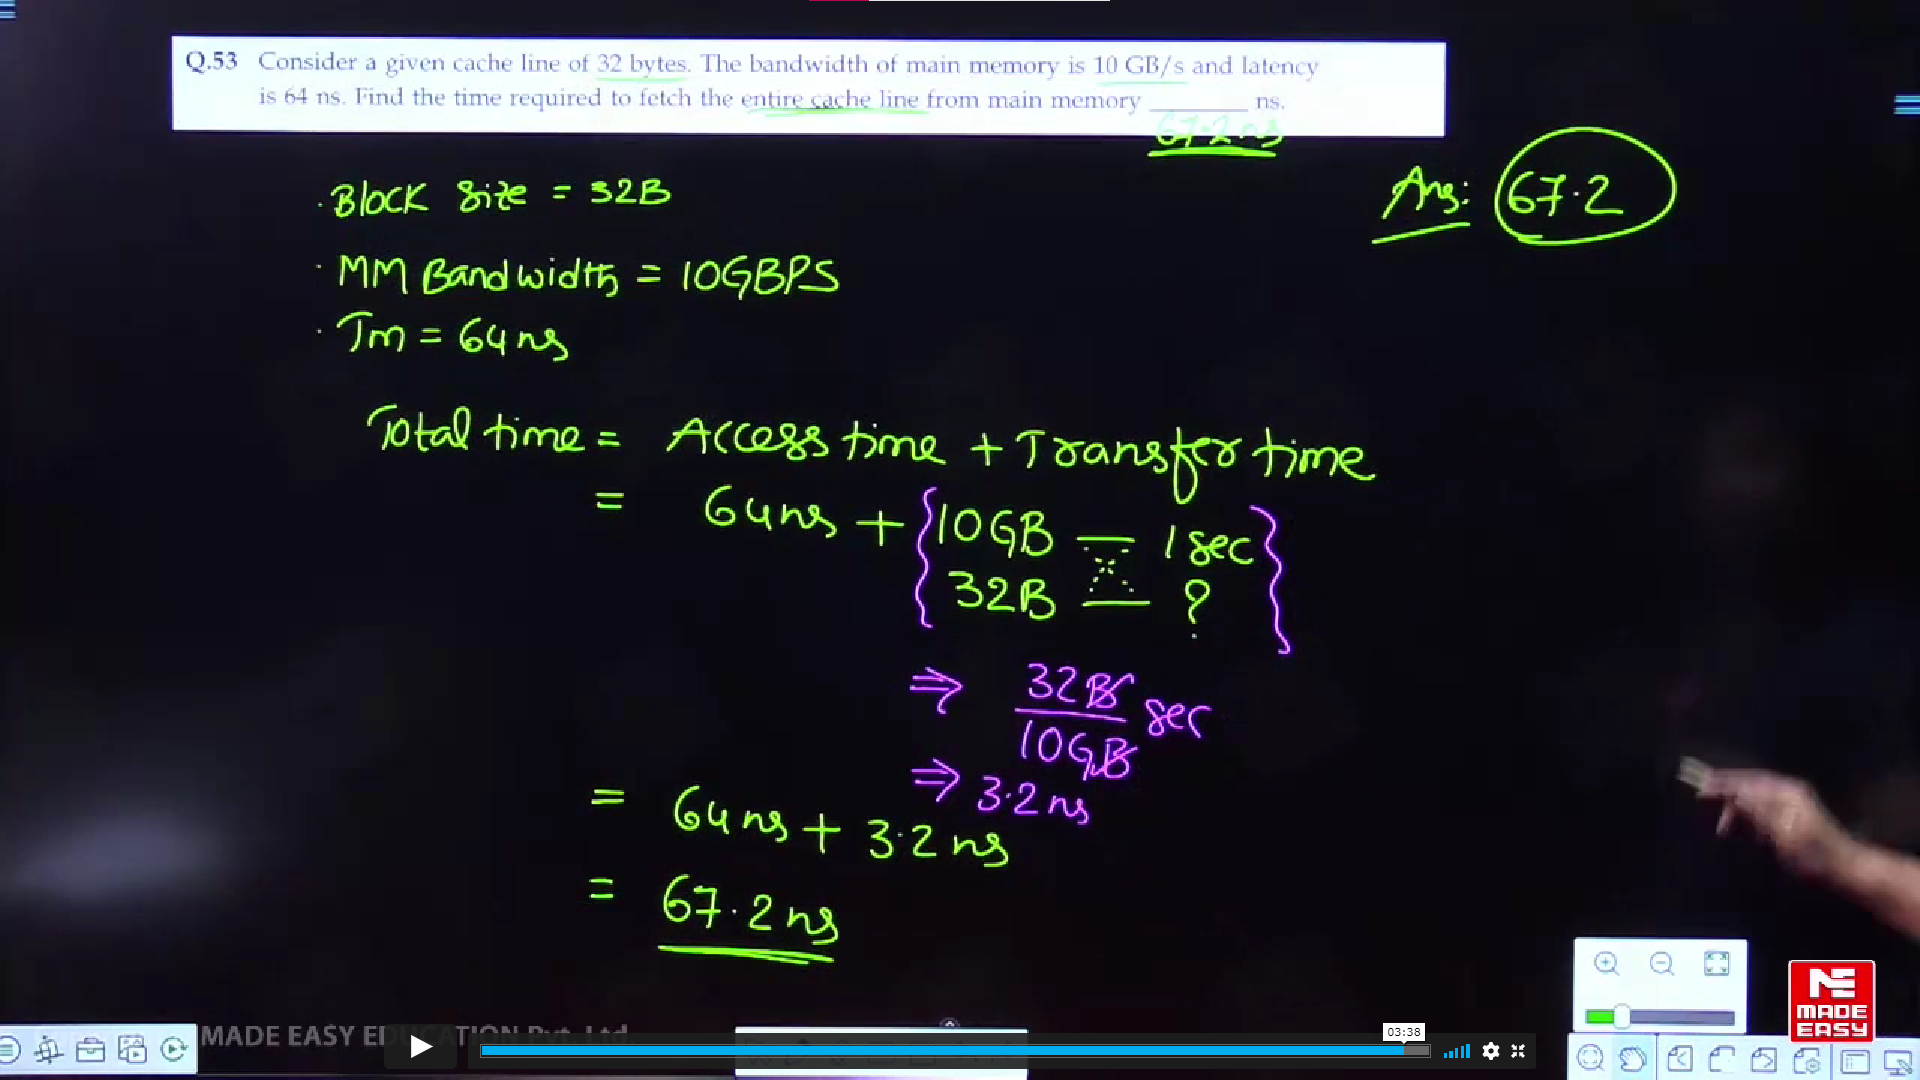 Q.53 Consider a given cache line of 32 bytes. The bandwidth of main memory is 10 GB/s and latency
is 64 ns. Find the time required to fetch the entire cache line from main memory ________ ns.
67.2 ns
Ans: 67.2
· Block Size = 32B
· MM Bandwidth = 10GBPS
· Tm = 64ns
Total time = Access time + Transfer time
= 64ns + {10GB — 1 sec
32B — ?}
⇒ 32B/10GB sec
⇒ 3.2 ns
= 64ns + 3.2 ns
= 67.2 ns
MADE EASY EDUCATION Pvt. Ltd.
03:38
MADE
EASY